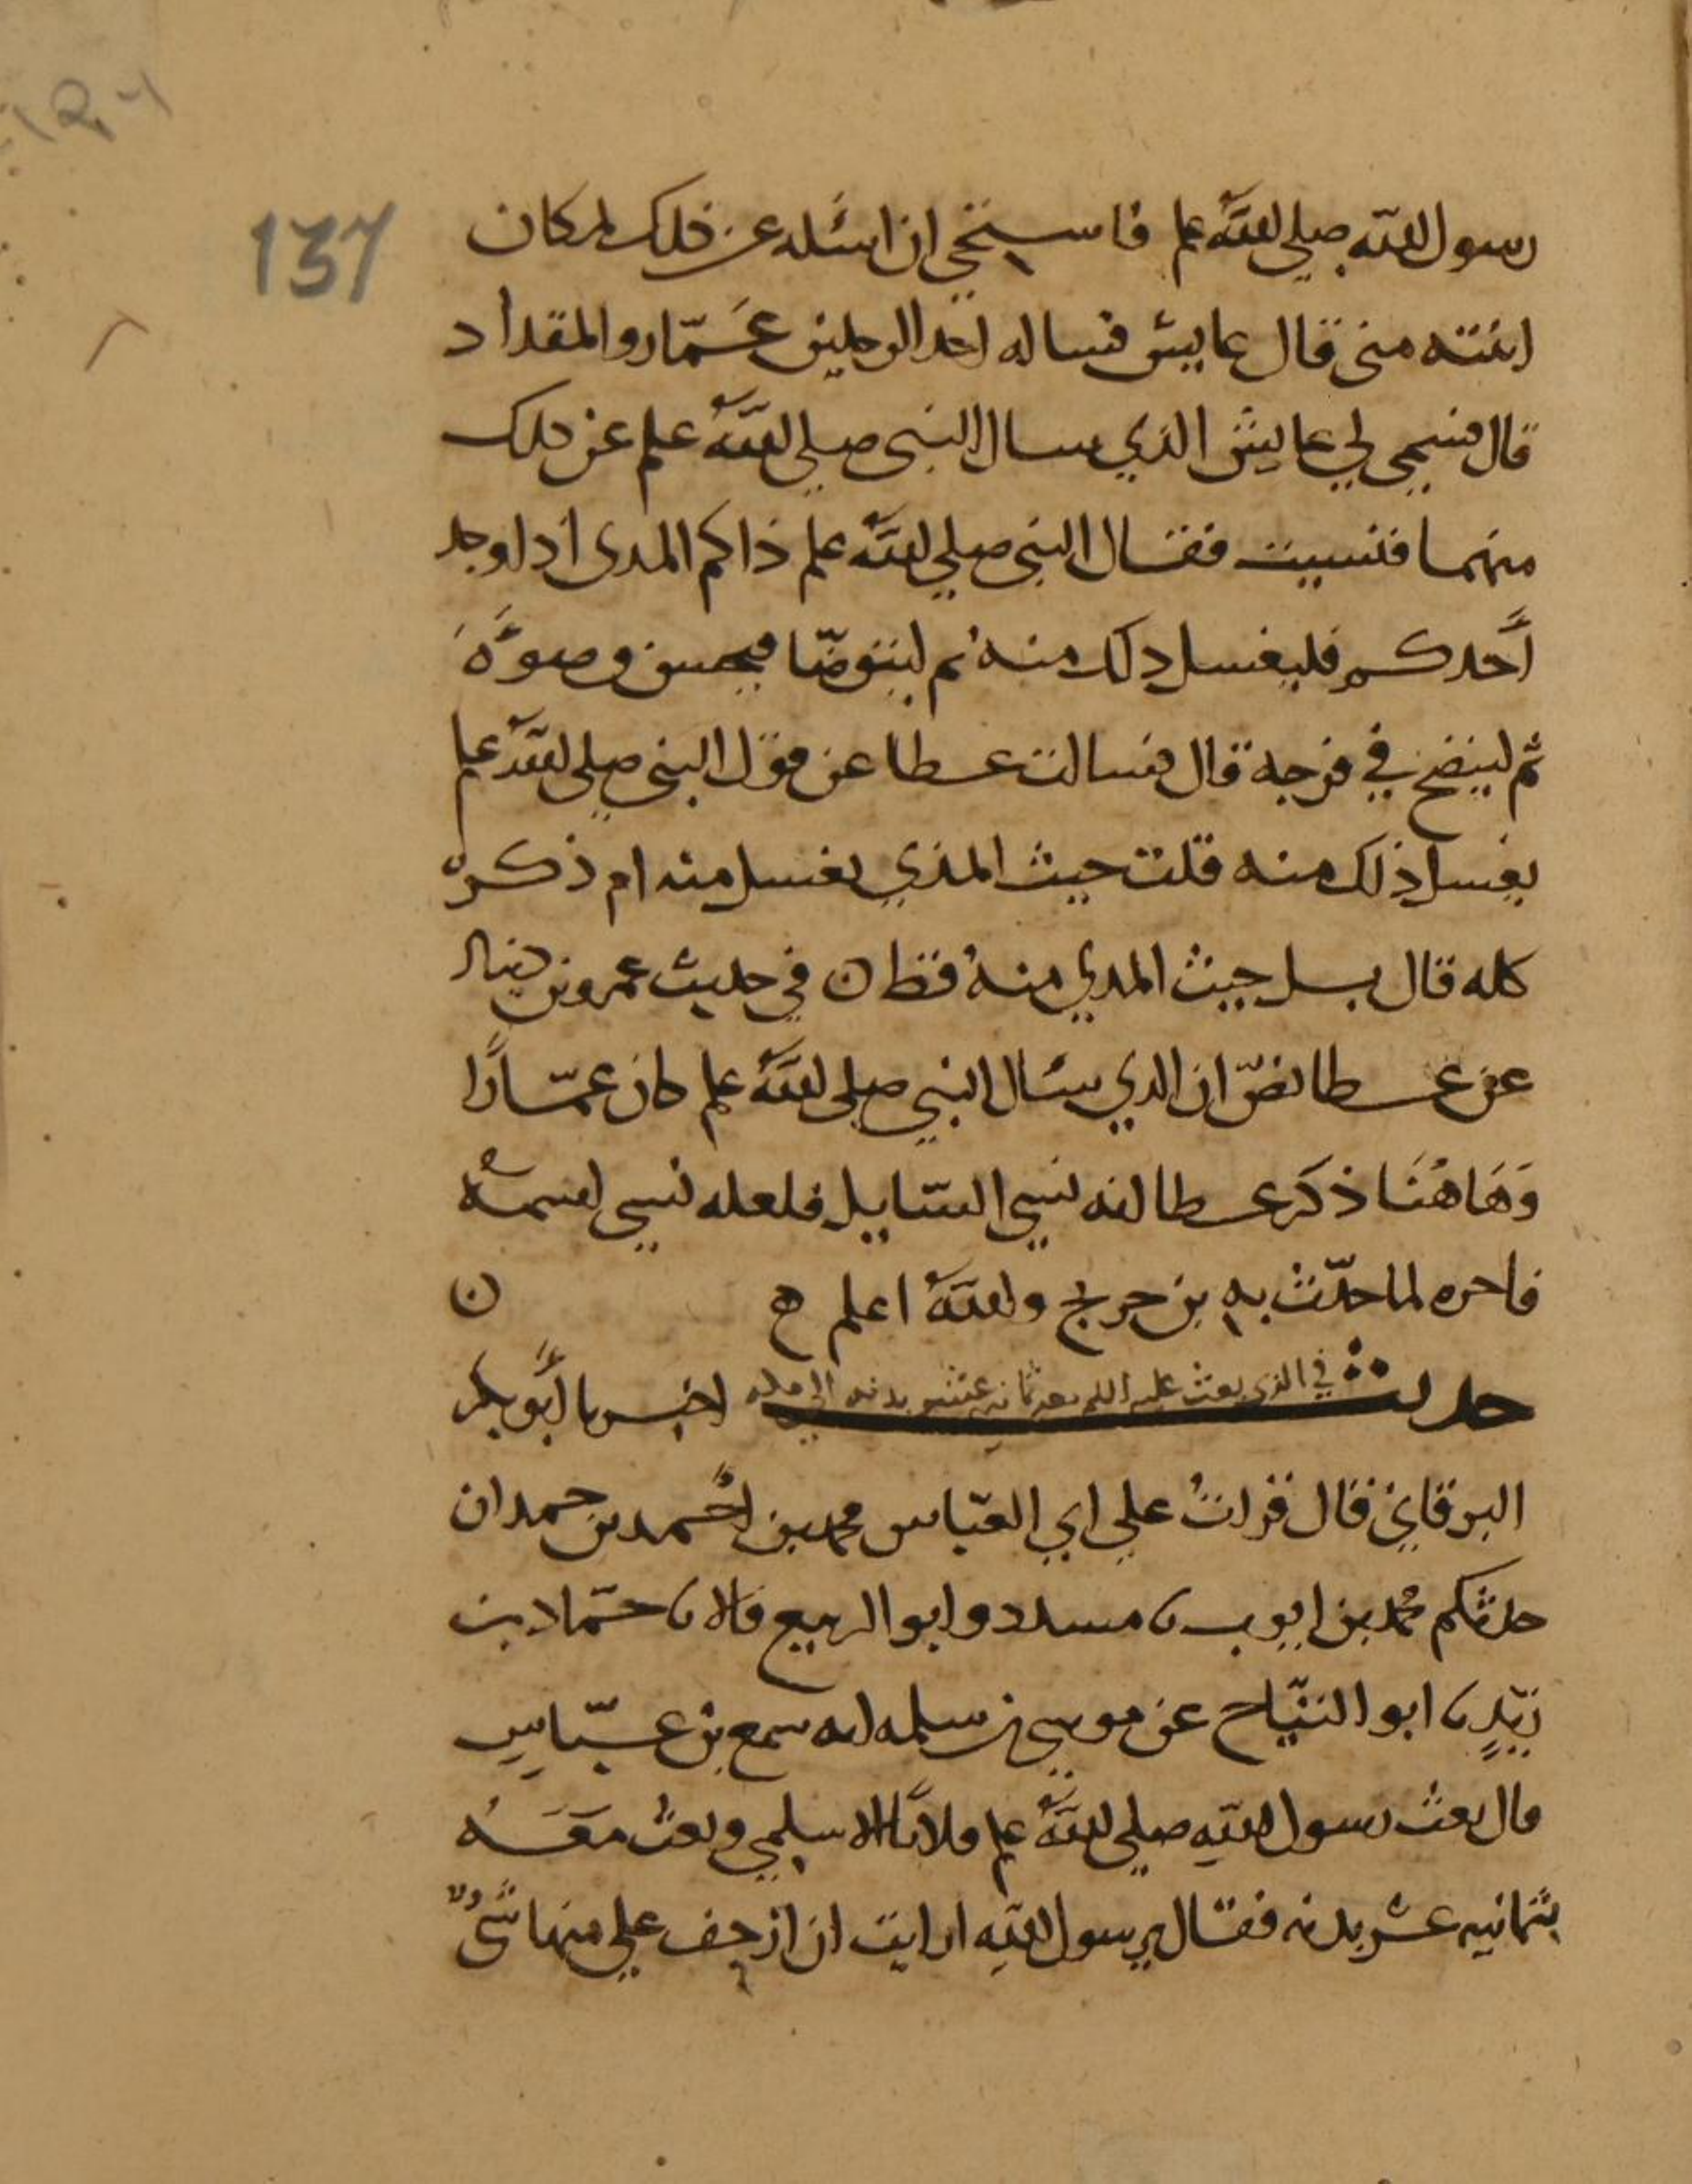 137
رسول الله صلى الله علم فاستحي ان اسئله عن ذلك لمكان
ابنته مني قال عايش فساله احد الرجلين عَمّار والمقداد
قال فسمى لي عايش الذي سال النبي صلى الله علم عن ذلك
منهما فنسيت فقال النبي صلى الله علم ذاكم المذى اذا وجد
أَحدكم فليغسل ذلك منه ثم ليتوضّا فيحسن وضوءَه
ثم لينضح في فرجه قال فسالت عطا عن قول النبي صلى الله علم
يغسل ذلك منه قلت حيث المذي يغسل منه ام ذكره
كله قال بل حيث المذي منه فقط ن في حديث عمرو بن دينار
عن عطا نصّ ان الذي سئال النبي صلى الله علم كان عمّارًا
وَهَاهُنَا ذكَر عطا انه نسي السّايل فلعله نسي اسمه
فاخره لما حدّث به بن جريج والله اعلم ح ن
حديث في الذي بعث عليه السلم معه ثمانيه عشر بدنه الى مكه اخبرنا أبو بكر
البرقاني قال قرات علي ابي العبّاس محمد بن أحمد بن حمدان
حدثكم محمد بن ايوب نا مسدد وابو الربيع قالا نا حمّاد بن
زيدٍ نا ابو التيّاح عن موسى بن سلمه انه سمع بن عبّاسٍ
قال بعث رسول الله صلى الله علم فلانًا الاسلمي وبعث مَعَه
بثمانيه عشر بدنه فقال يرسول الله ارايت ان ازحف علي منها شيءٌ